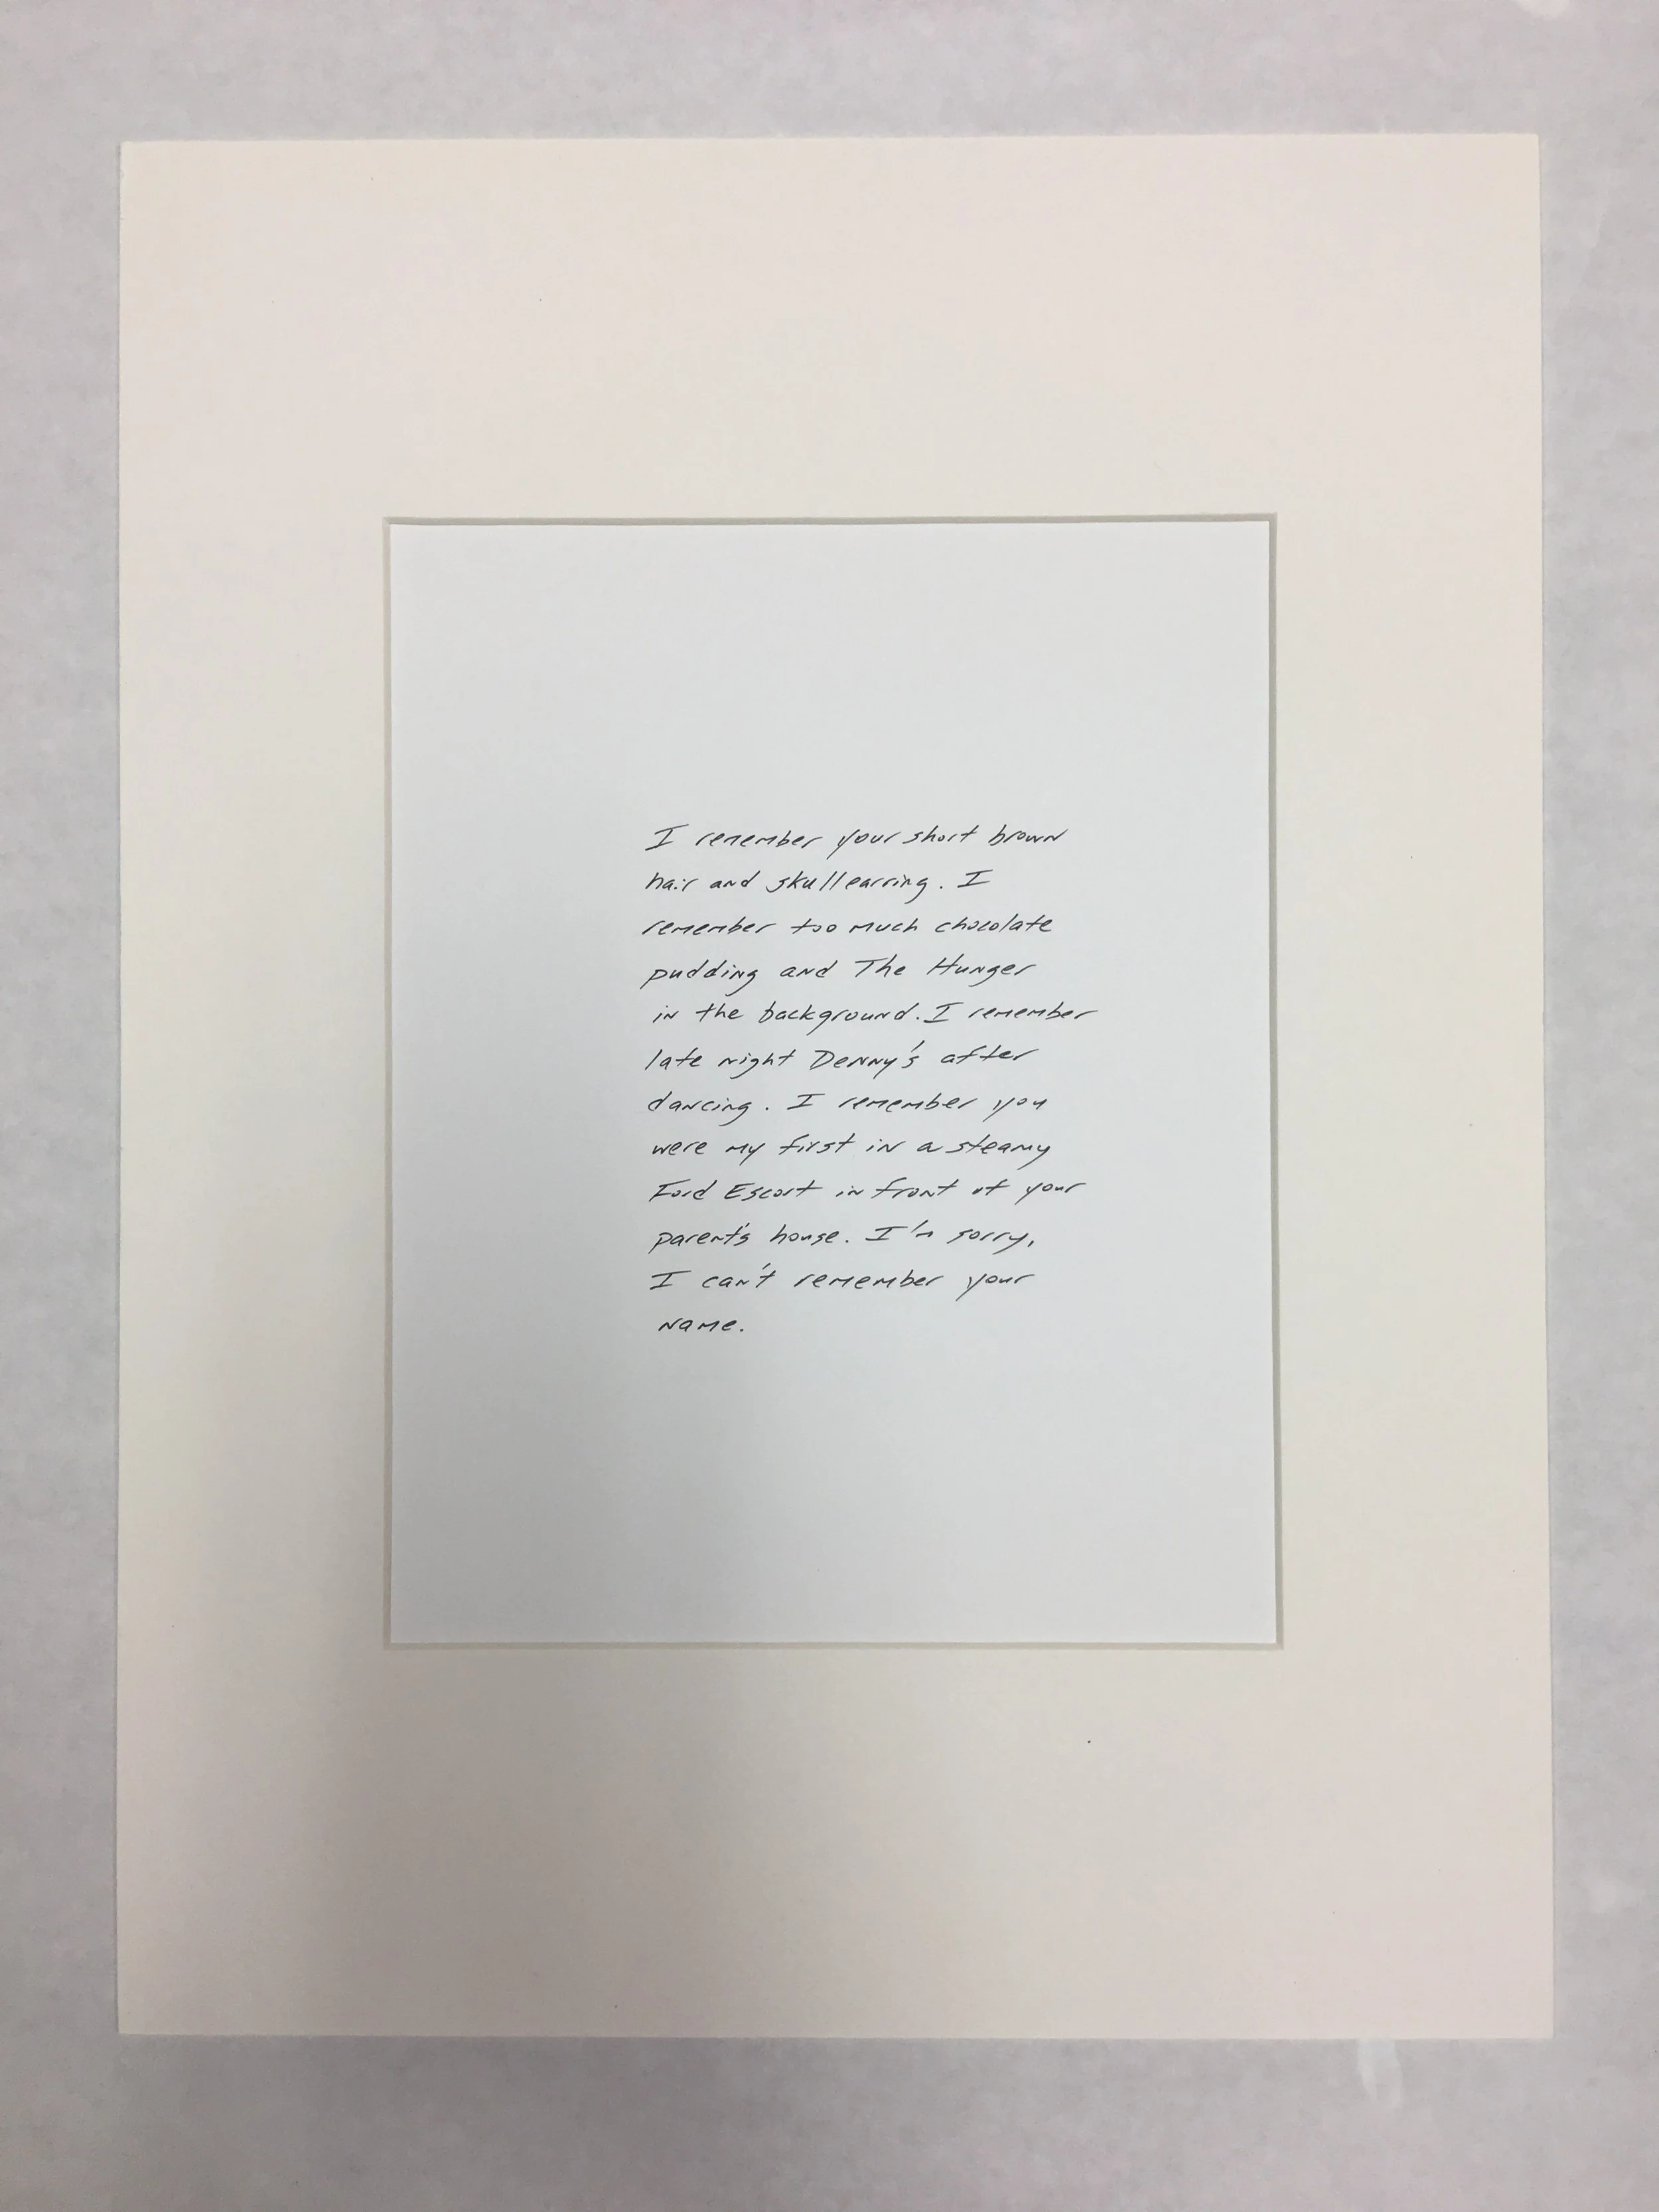 I remember your short brown
hair and skull earring. I
remember too much chocolate
pudding and The Hunger
in the background. I remember
late night Denny's after
dancing. I remember you
were my first in a steamy
Ford Escort in front of your
parent's house. I'm sorry,
I can't remember your
name.